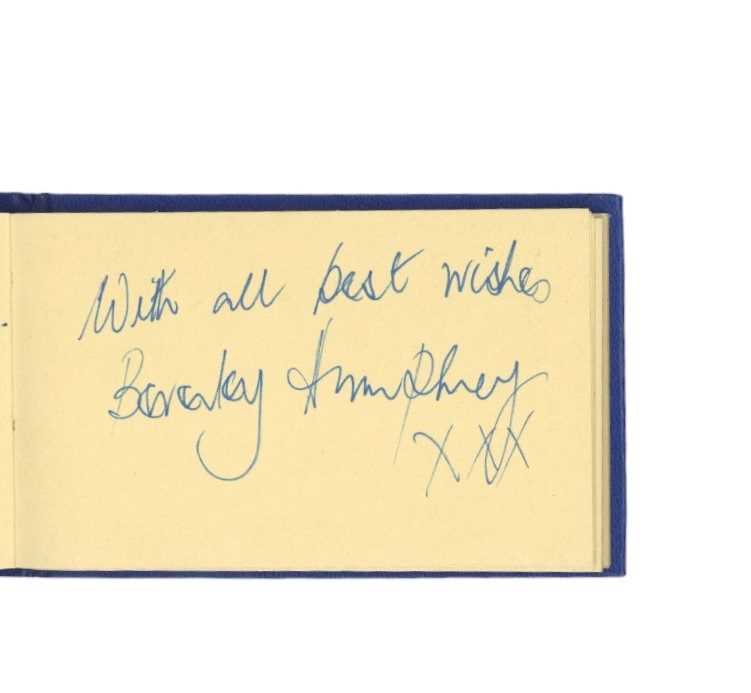 With all best wishes
Beverley Humphrey
xxx